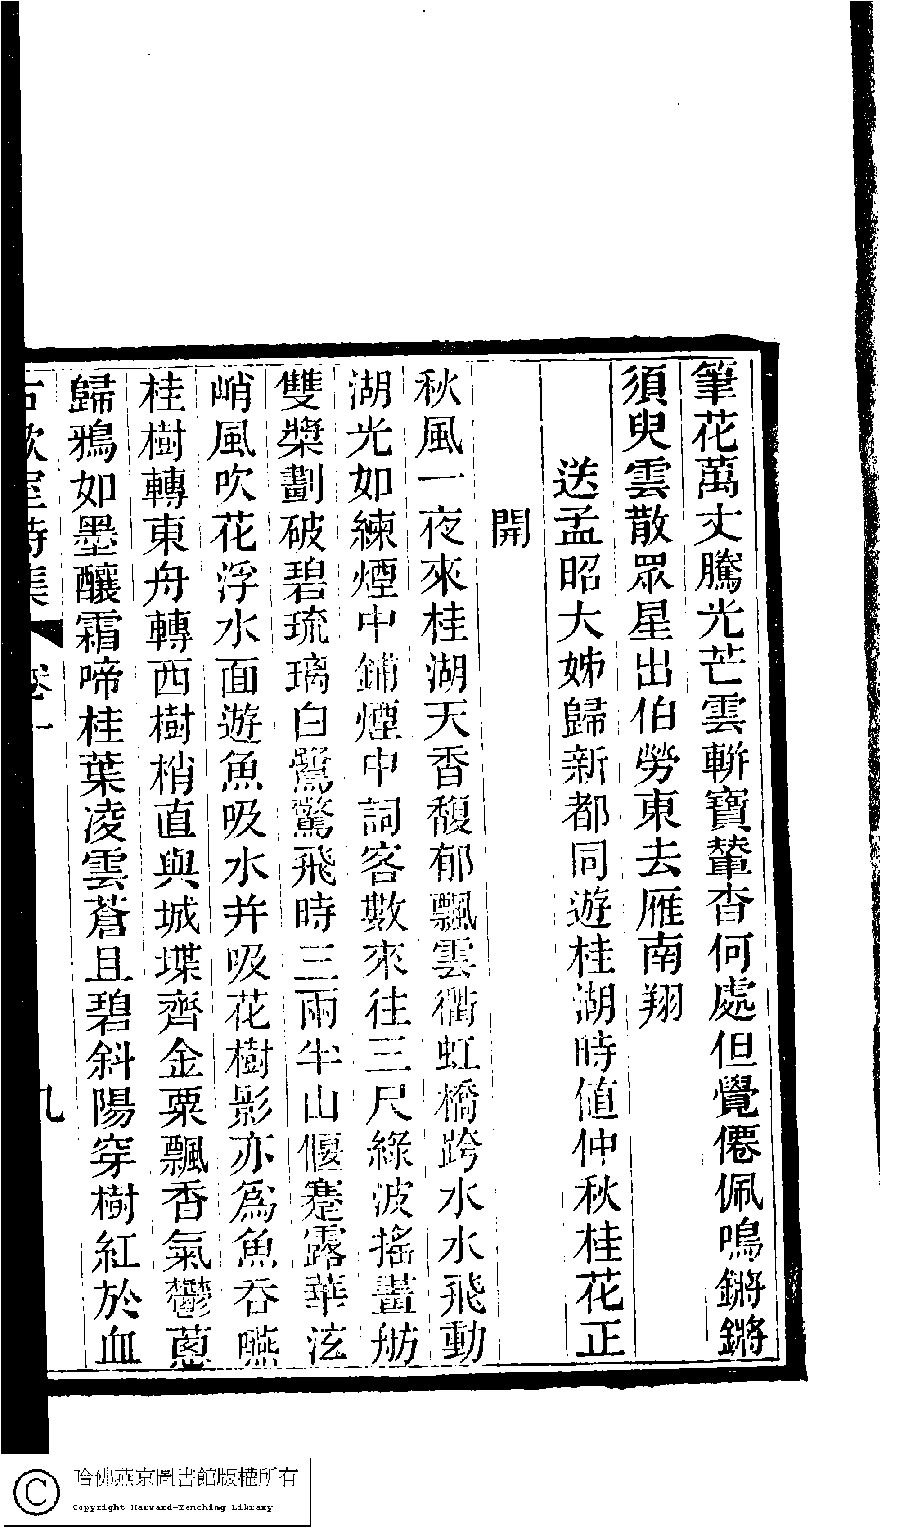 筆花萬丈騰光芒雲輧寶輦杳何處但覺僊佩鳴鏘鏘
須臾雲散眾星出伯勞東去雁南翔
送孟昭大姊歸新都同遊桂湖時值仲秋桂花正
開
秋風一夜來桂湖天香馥郁飄雲衢虹橋跨水水飛動
湖光如練煙中鋪煙中詞客數來往三尺綠波搖畫舫
雙槳劃破碧琉璃白鷺驚飛時三兩半山偃蹇露華泫
峭風吹花浮水面遊魚吸水并吸花樹影亦為魚吞嚥
桂樹轉東舟轉西樹梢直與城堞齊金粟飄香氣鬱蔥
歸鴉如墨釀霜啼桂葉凌雲蒼且碧斜陽穿樹紅於血
古歡室詩集 卷一
九
哈佛燕京圖書館版權所有
Copyright Harvard-Yenching Library